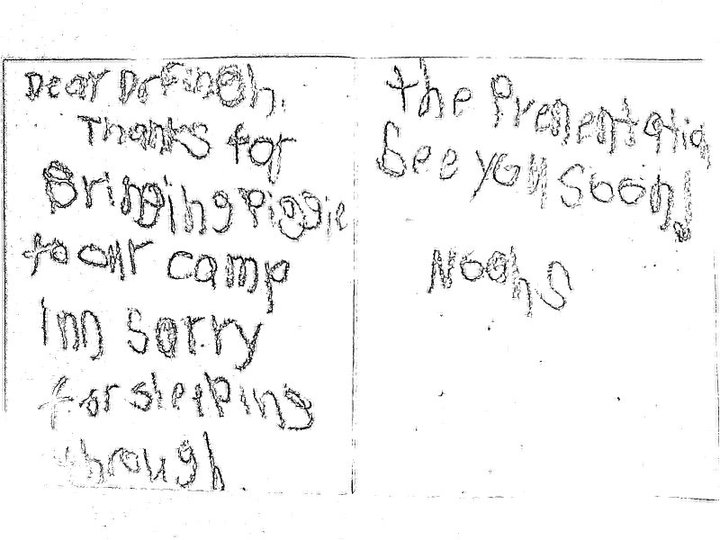 Dear Dr Finch,
Thanks for
Bringing Piggie
to our camp
Im sorry
for sleeping
through
the Prementatin
See you soon!
Noahs